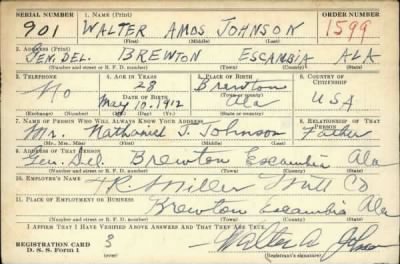 SERIAL NUMBER 1. NAME (Print) ORDER NUMBER
901 WALTER AMOS JOHNSON 1599
(First) (Middle) (Last)
2. ADDRESS (Print)
GEN. DEL. BREWTON ESCAMBIA ALA
(Number and street or R. F. D. number) (Town) (County) (State)
3. TELEPHONE 4. AGE IN YEARS 5. PLACE OF BIRTH 6. COUNTRY OF CITIZENSHIP
No 28 Brewton
DATE OF BIRTH (Town or county)
May 10, 1912 Ala USA
(Exchange) (Number) (Mo.) (Day) (Yr.) (State or country)
7. NAME OF PERSON WHO WILL ALWAYS KNOW YOUR ADDRESS 8. RELATIONSHIP OF THAT PERSON
Mr. Nathaniel J. Johnson Father
(Mr., Mrs., Miss) (First) (Middle) (Last)
9. ADDRESS OF THAT PERSON
Gen. Del. Brewton Escambia Ala
(Number and street or R. F. D. number) (Town) (County) (State)
10. EMPLOYER'S NAME
T.R. Miller Mill Co
11. PLACE OF EMPLOYMENT OR BUSINESS
Brewton Escambia Ala
(Number and street or R. F. D. number) (Town) (County) (State)
I AFFIRM THAT I HAVE VERIFIED ABOVE ANSWERS AND THAT THEY ARE TRUE.
REGISTRATION CARD 3 Walter A. Johnson
D. S. S. Form 1 (over) (Registrant's signature)